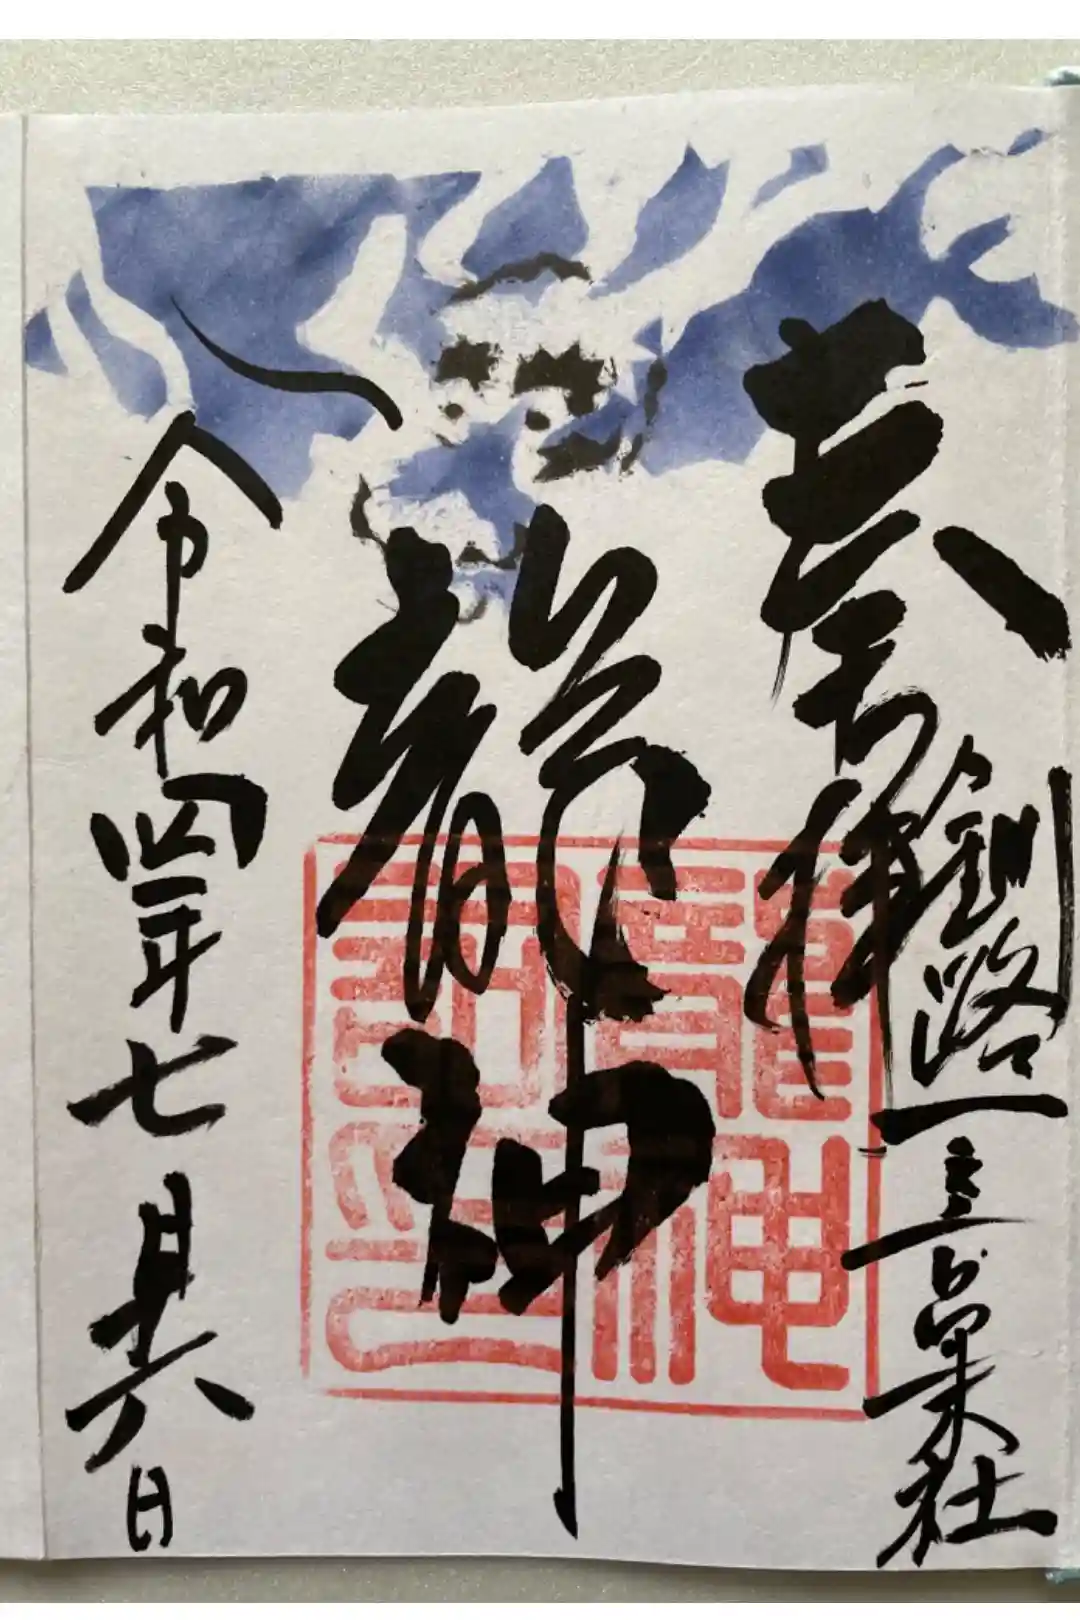 奉拝
釧路一之宮 社
龍神
令和四年七月十六日
龍神